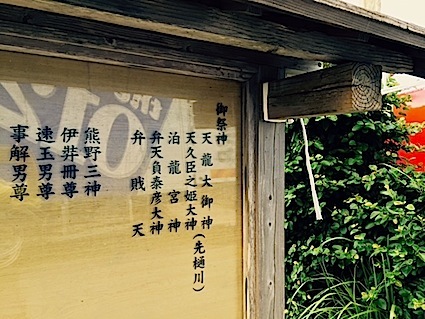 御祭神
天龍大御神
天久臣之姫大神(先樋川)
泊龍宮神
弁天負泰彦大神
弁賎天
熊野三神
伊弉冊尊
速玉男尊
事解男尊